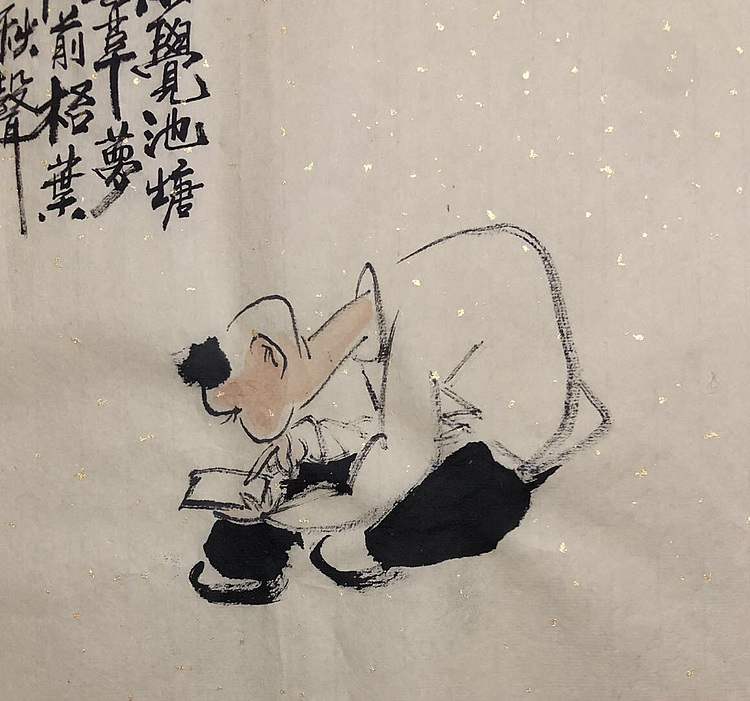 覺池塘
草夢
前梧葉
秋聲